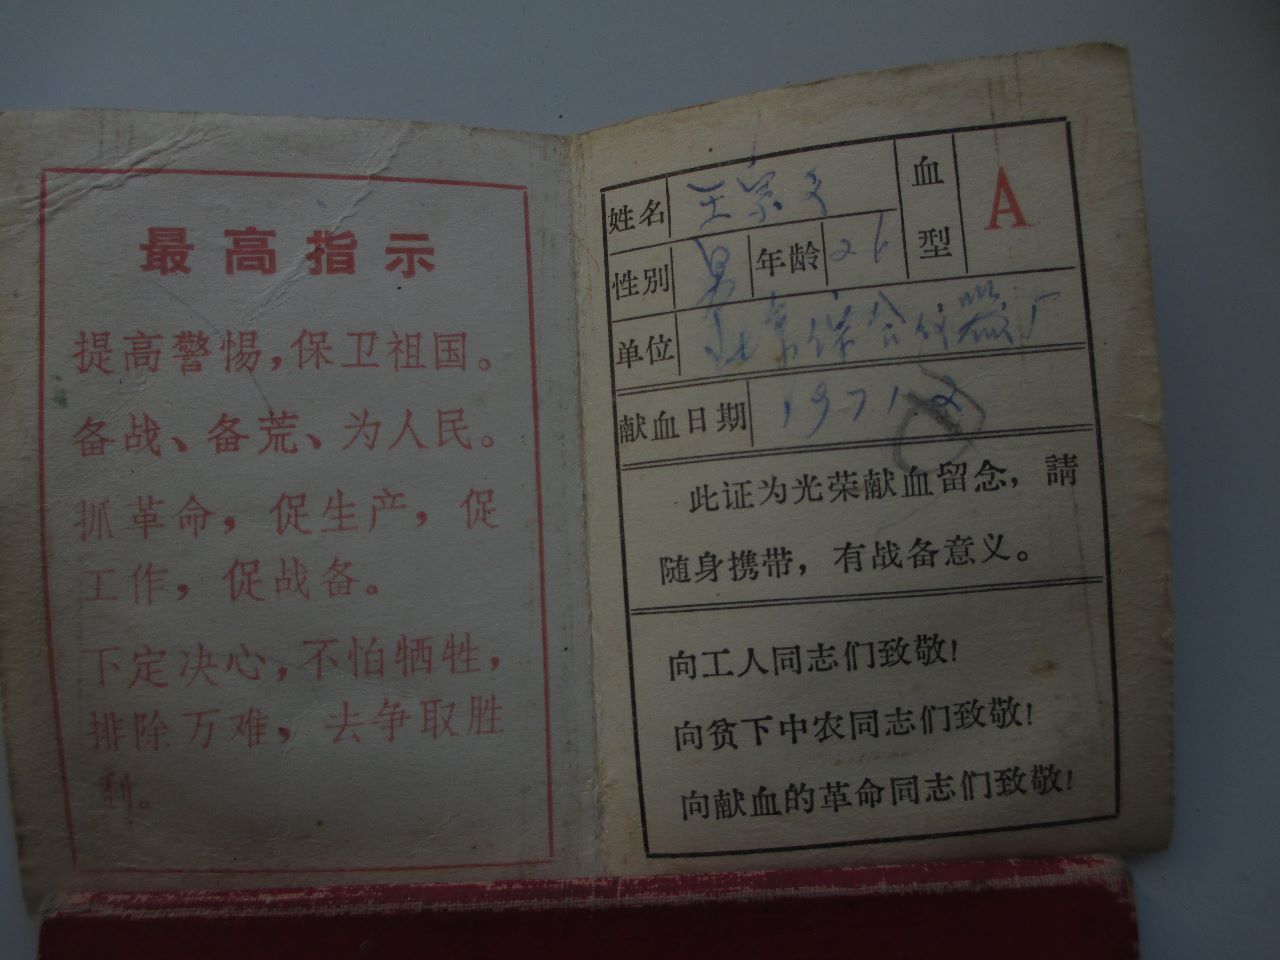 最高指示
提高警惕，保卫祖国。
备战、备荒、为人民。
抓革命，促生产，促
工作，促战备。
下定决心，不怕牺牲，
排除万难，去争取胜
利。
姓名 王
血型 A
性别 男 年龄 26
单位 综合仪器厂
献血日期 1971.2
此证为光荣献血留念，請
随身携带，有战备意义。
向工人同志们致敬！
向贫下中农同志们致敬！
向献血的革命同志们致敬！